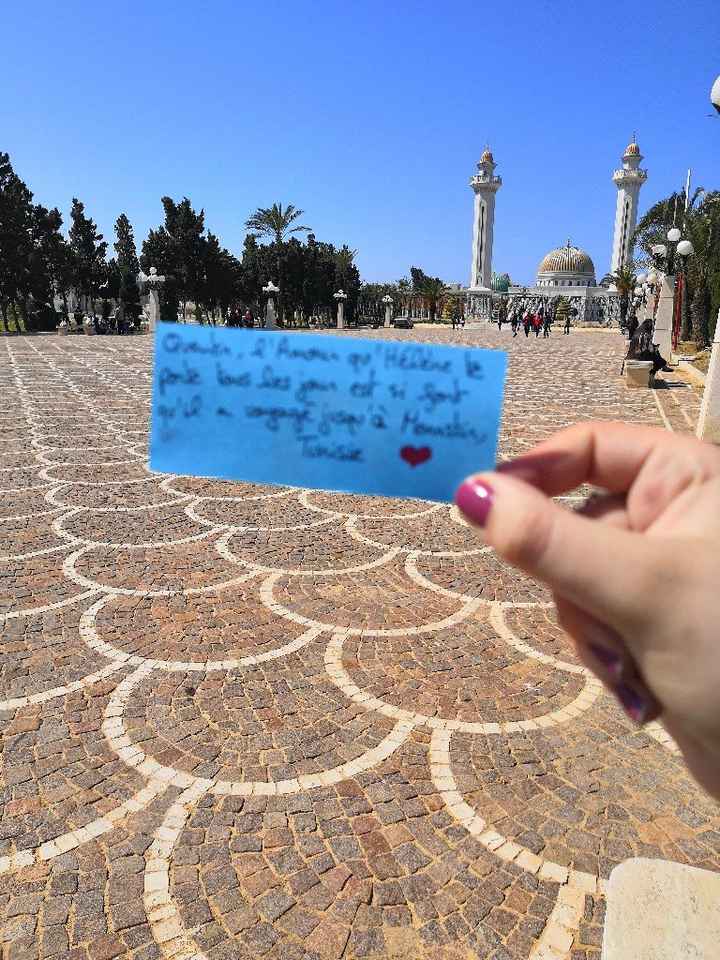 Quentin, l'Amour qu'Hélène te
porte tous les jours est si fort
qu'il a voyagé jusqu'à Monastir,
Tunisie